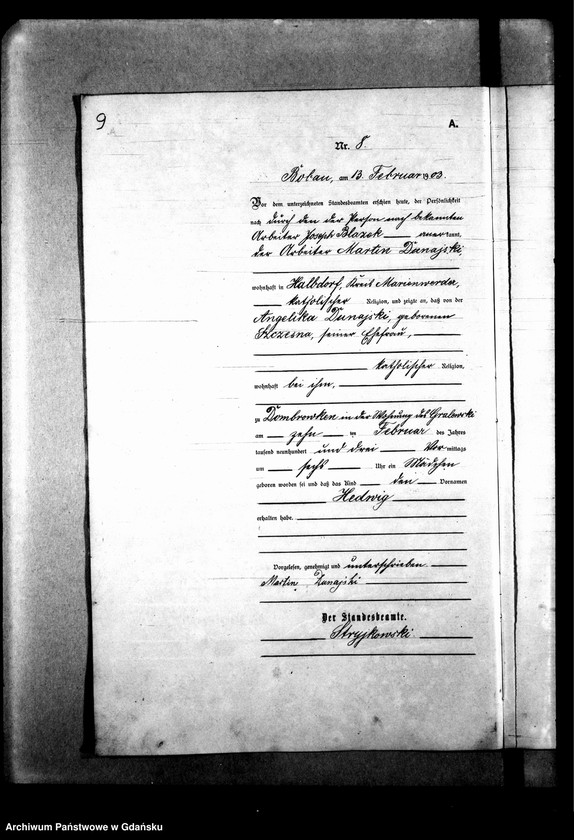 9
A.
Nr. 8.
Bobau, am 13. Februar 1903.
Vor dem unterzeichneten Standesbeamten erschien heute, der Persönlichkeit
nach durch den der Person nach bekannten
Arbeiter Joseph Blazek anerkannt,
der Arbeiter Martin Dunajski,
wohnhaft in Halbdorf, Kreis Marienwerder,
katholischer Religion, und zeigte an, daß von der
Angelika Dunajski, geborenen
Szczesna, seiner Ehefrau,
katholischer Religion,
wohnhaft bei ihm,
zu Dombrowken in der Wohnung des Gralewski
am zehn ten Februar des Jahres
tausend neunhundert und drei Vormittags
um sechs Uhr ein Mädchen
geboren worden sei und daß das Kind den Vornamen
Hedwig
erhalten habe.
Vorgelesen, genehmigt und unterschrieben
Martin Dunajski
Der Standesbeamte.
Stryjkowski
Archiwum Państwowe w Gdańsku